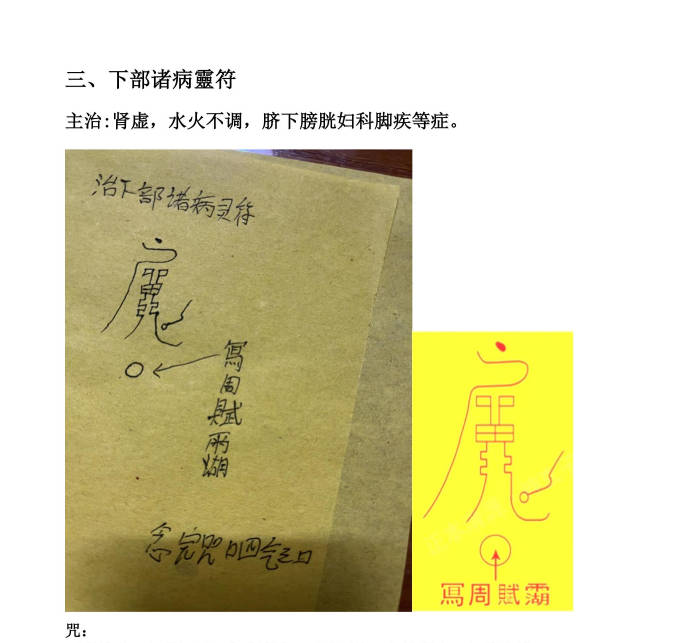 三、下部诸病靈符
主治:肾虚，水火不调，脐下膀胱妇科脚疾等症。
治下部诸病灵符
冩
周
賦
雨
念完咒 哂气三口
冩周賦霸
咒：